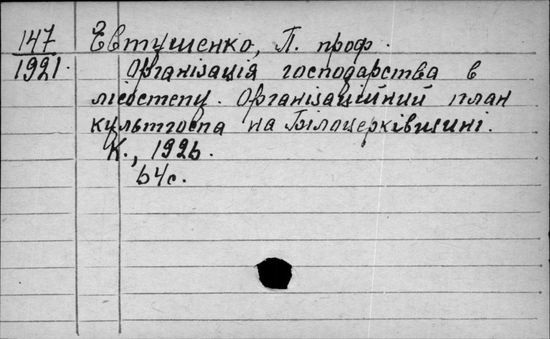 147 Евтушенко, П. проф.
1921. Організація господарства в
лісостепу. Організаційний план
культгоспа на Білоцерківщині.
К., 1926.
64с.